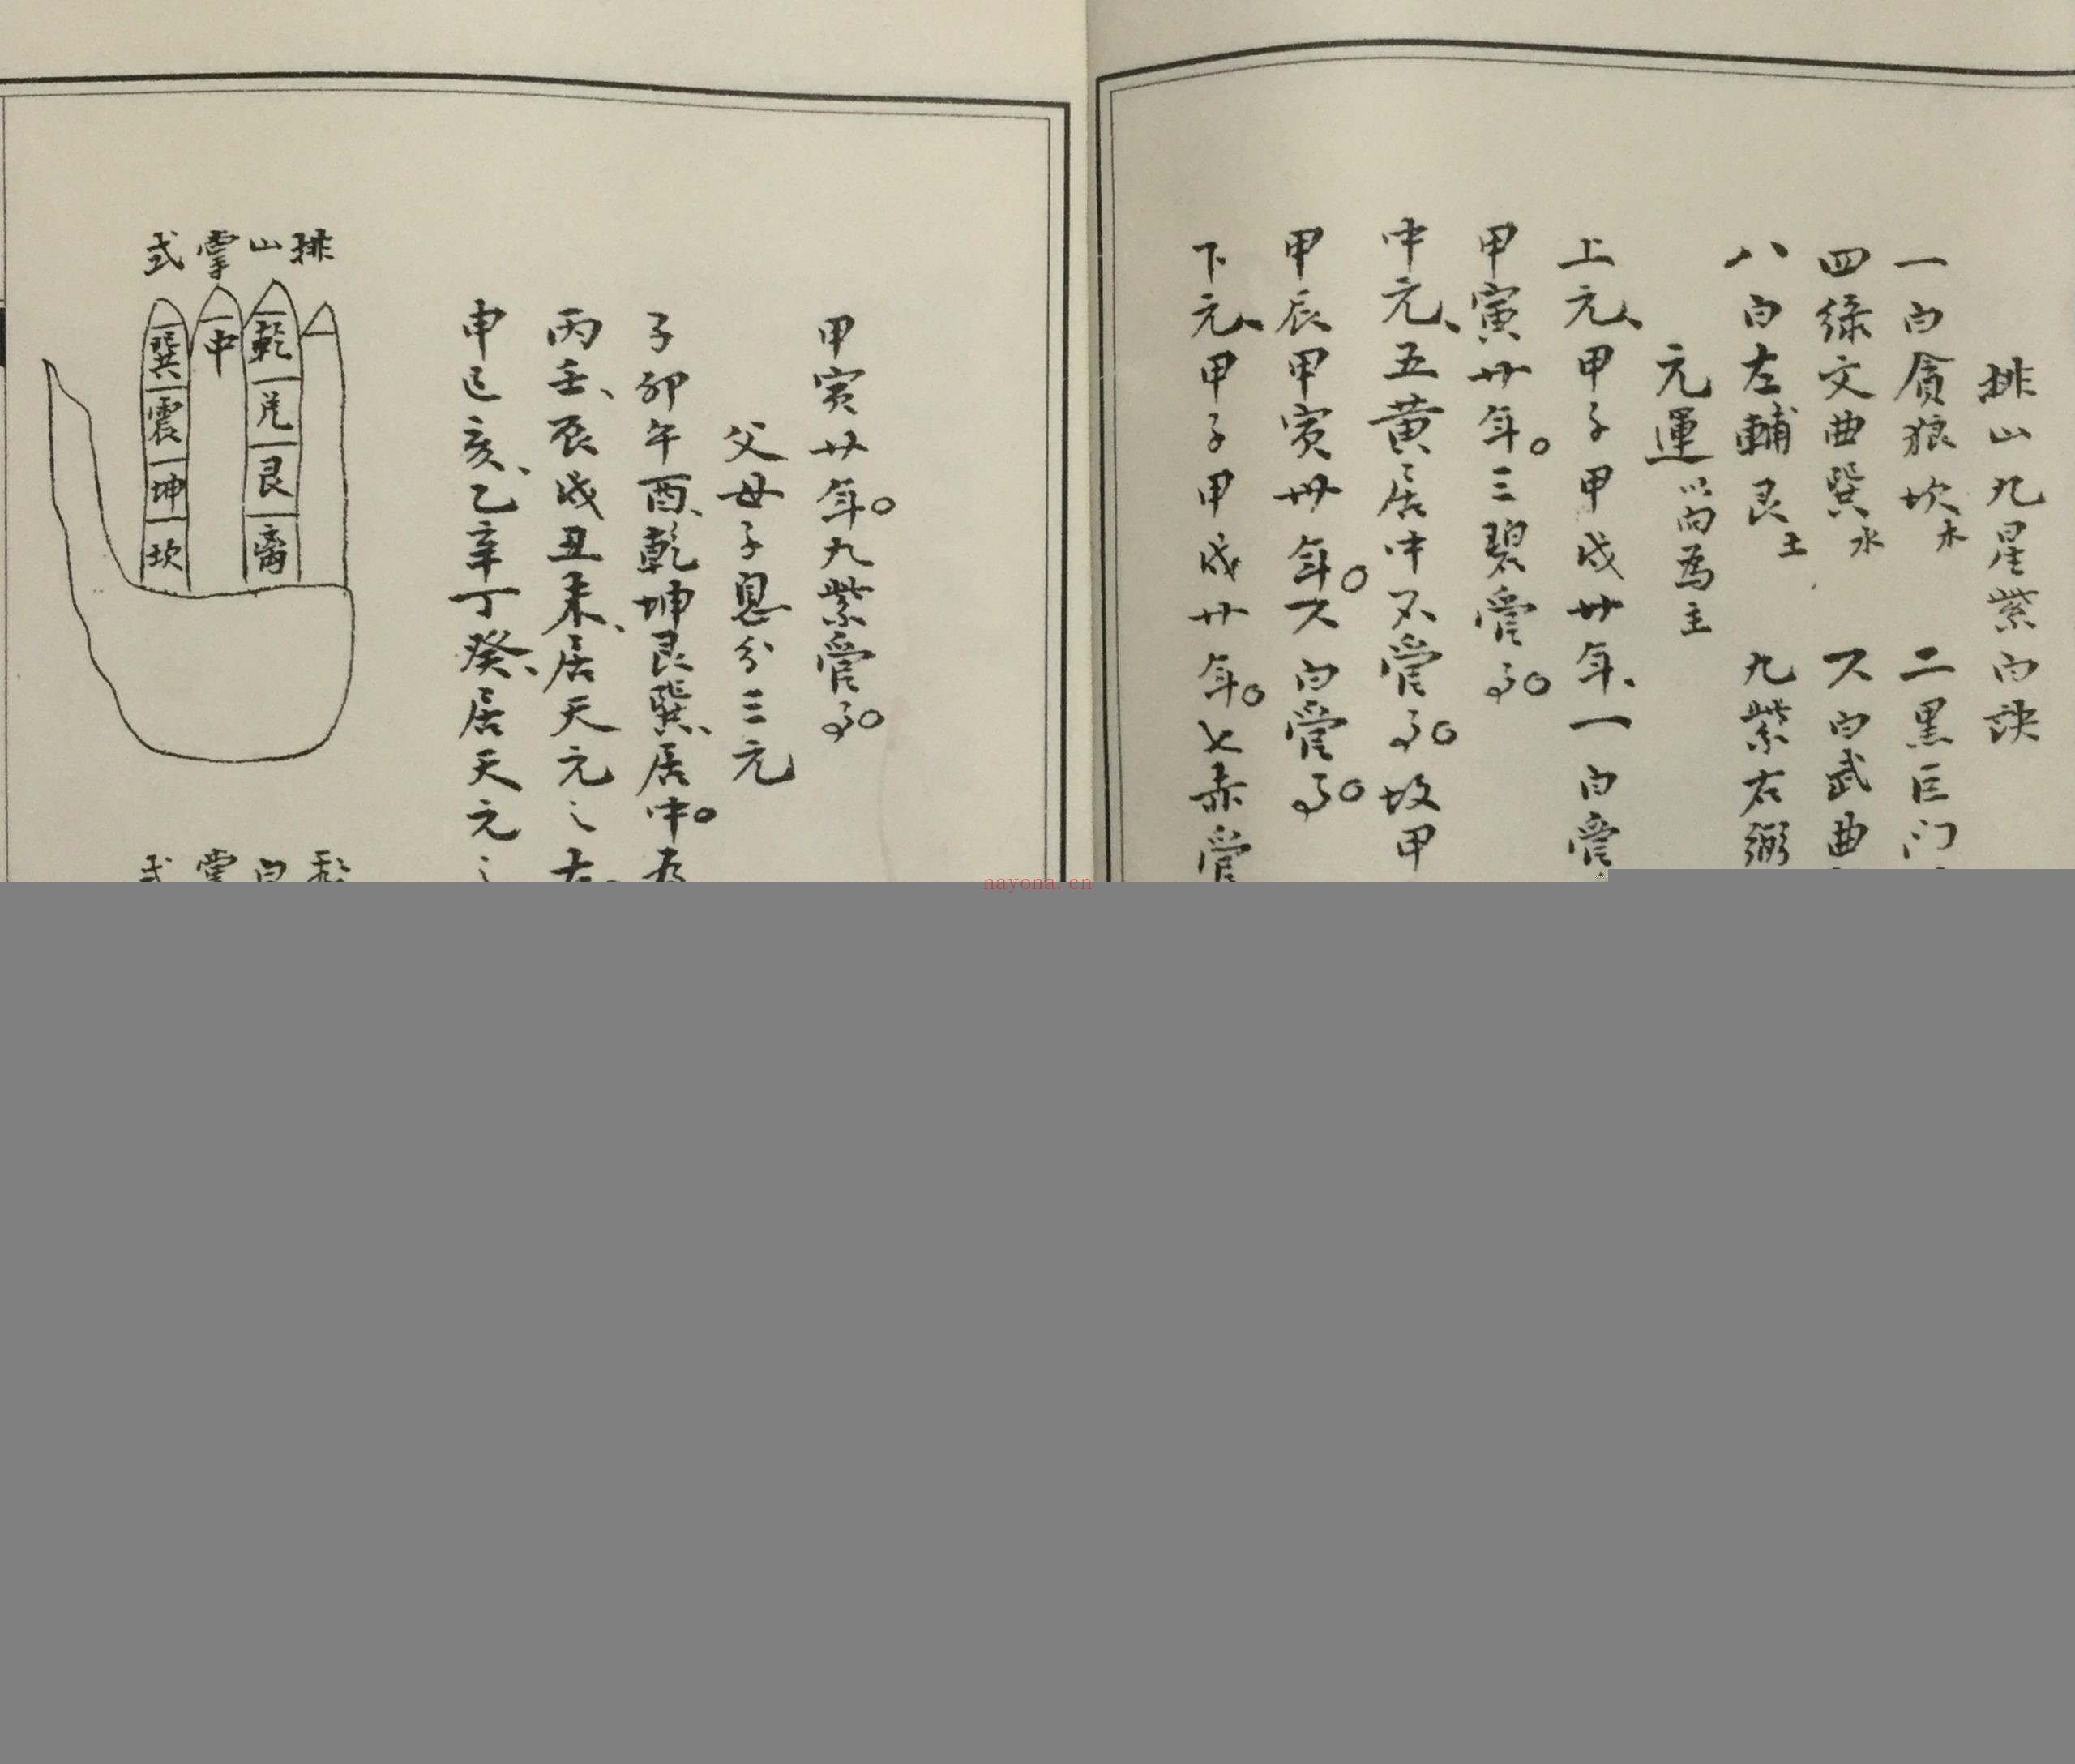 排山九星紫白訣
一白貪狼坎水 二黑巨门
四綠文曲巽水 六白武曲
八白左輔艮土 九紫右弼
元運
為主
上元、甲子甲戌廿年、一白管
甲寅廿年。三碧管局。
中元、五黄居中不管局。故甲
甲辰甲寅卅年。六白管局。
下元、甲子甲戌廿年。七赤管
甲寅廿年。九紫管局。
父母子息分三元
子卯午酉、乾坤艮巽、居中。為
丙壬、辰戌丑未、居天元之右
申巳亥、乙辛丁癸、居天元之
排山掌式
乾
兌
艮
離
中
巽
震
坤
坎
白掌式
nayona.cn